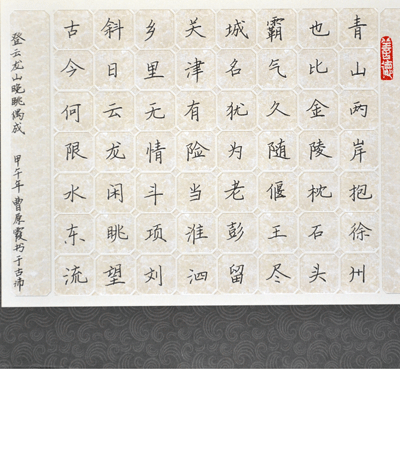 青山两岸抱徐州
也比金陵枕石头
霸气久随偃王尽
城名犹为老彭留
关津有险当淮泗
乡里无情斗项刘
斜日云龙闲眺望
古今何限水东流
登云龙山晚眺偶成 甲午年曹原霞书于古沛